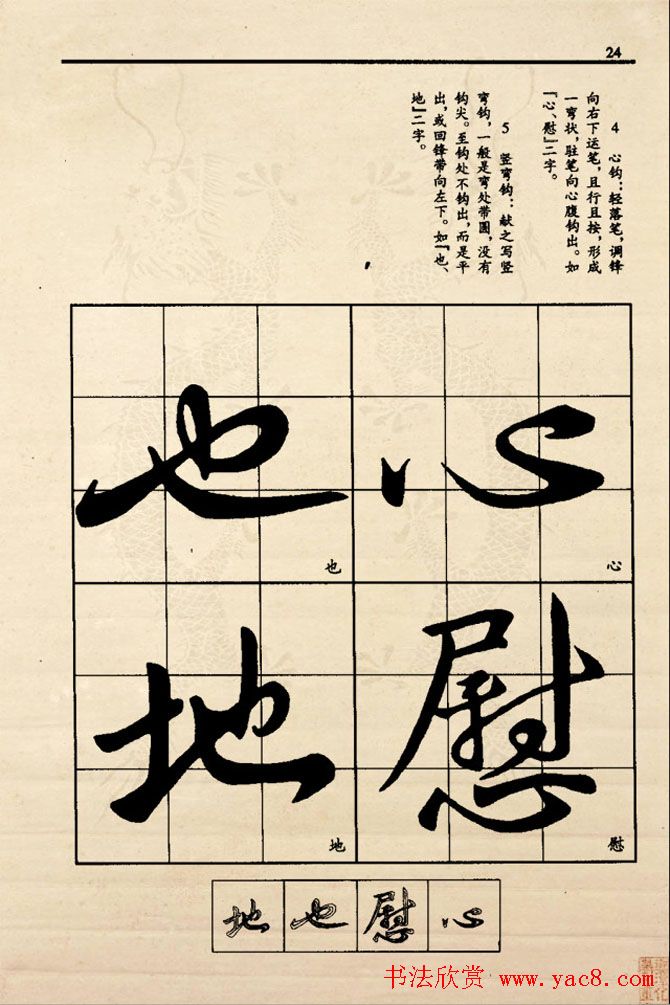 24
4 心钩：轻落笔，调锋
向右下运笔，且行且按，形成
一弯状，驻笔向心腹钩出。如
『心、慰』二字。
5 竖弯钩：献之写竖
弯钩，一般是弯处带圆，没有
钩尖。至钩处不钩出，而是平
出，或回锋带向左下。如『也、
地』二字。
心
心
慰
慰
也
也
地
地
地 也 慰 心
书法欣赏 www.yac8.com